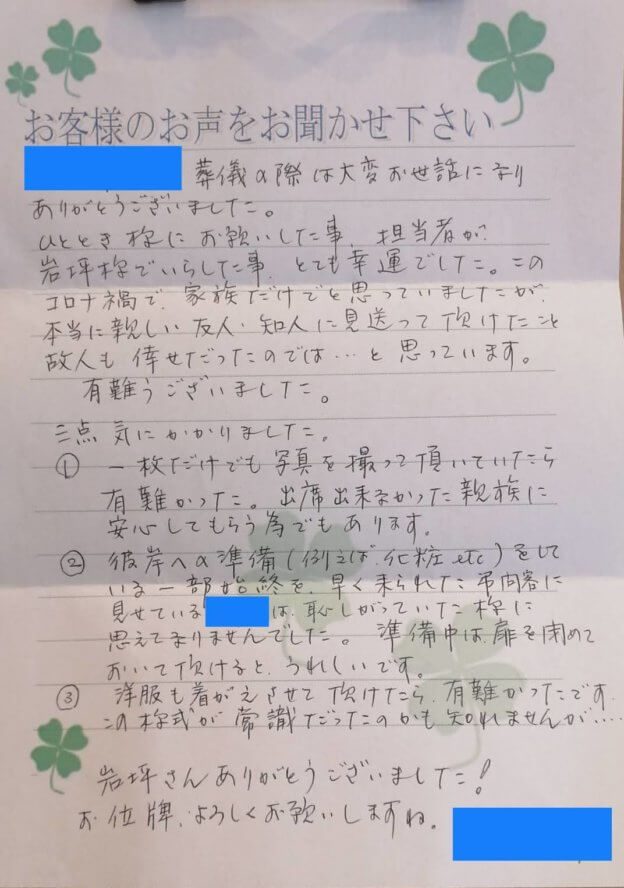 お客様のお声をお聞かせ下さい
葬儀の際は大変お世話になり
ありがとうございました。
ひととき様に お願いした事、担当者が
岩坪様でいらした事、とても幸運でした。この
コロナ禍で、家族だけでと思っていましたが、
本当に親しい友人・知人に見送って頂けたこと
故人も 倖せだったのでは…と 思っています。
有難うございました。
三点 気にかかりました。
① 一枚だけでも 写真を撮って頂いていたら
有難かった。出席出来なかった親族に
安心してもらう為でもあります。
② 彼岸への準備(例えば、化粧 etc)をして
いる一部始終を、早く来られた弔問客に
見せている は、恥しがっていた様に
思えてなりませんでした。準備中は、扉を閉めて
おいて頂けると、うれしいです。
③ 洋服も着がえさせて頂けたら、有難かったです
この様式が常識だったのかも知れませんが.....
岩坪さんありがとうございました!
お位牌、よろしくお願いしますね。